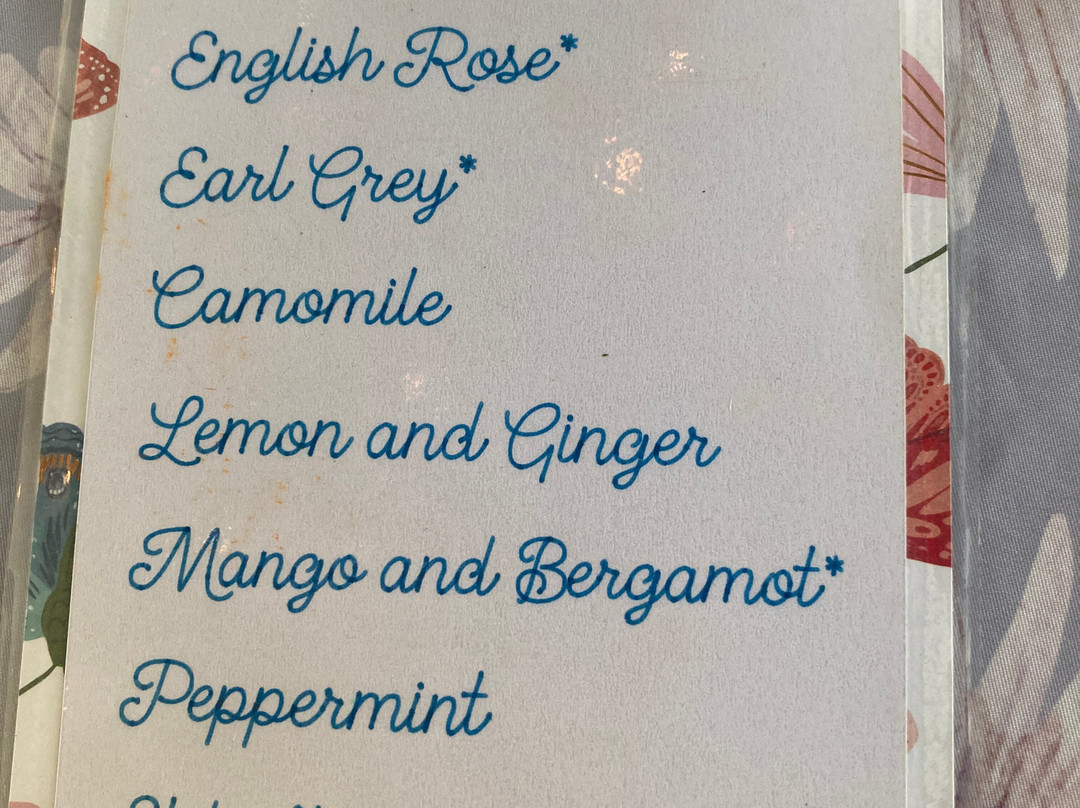 English Rose*
Earl Grey*
Camomile
Lemon and Ginger
Mango and Bergamot*
Peppermint